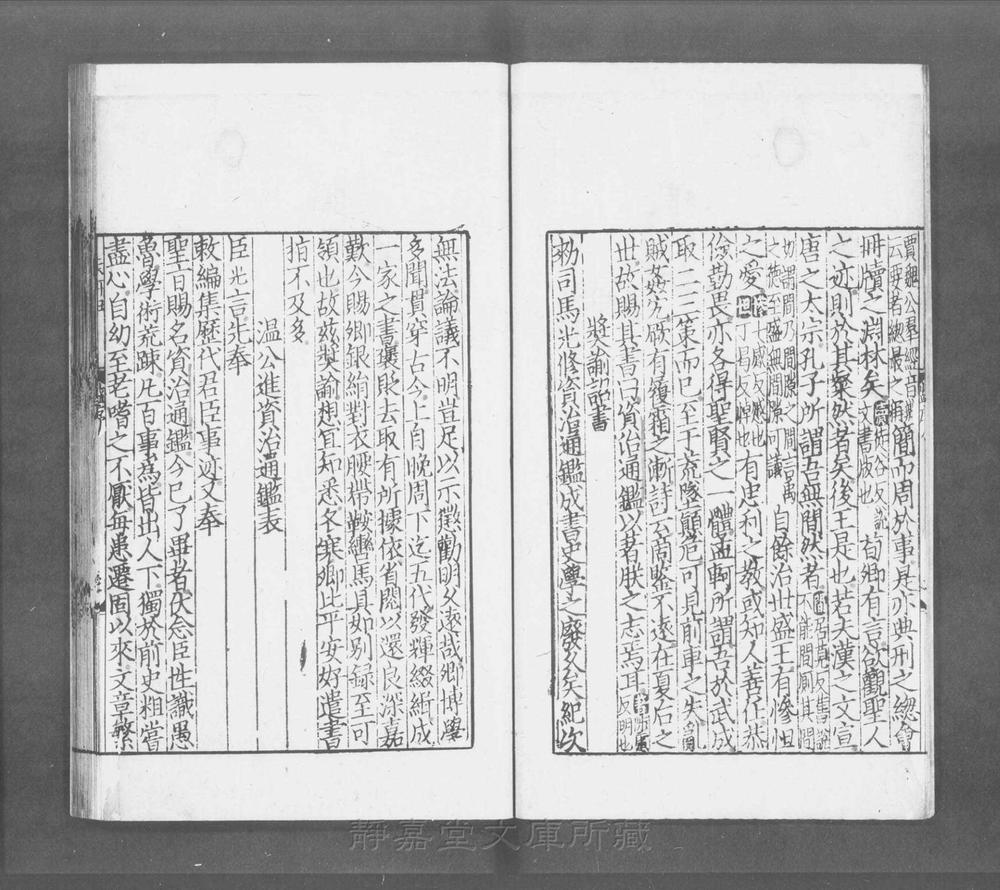 賈魏公羣經音辨云要者總最之稱簡而周於事是亦典刑之總會
冊牘之淵林矣牘徒谷反說文書版也荀卿有言欲觀聖人
之迹則於其粲然者矣後王是也若夫漢之文宣
唐之太宗孔子所謂吾無間然者間居莧反舊說不能間厠其間
切謂間乃間隙之間言禹之德至盛無間隙可議自餘治世盛王有慘怛
之愛慘七感反慼也怛丁曷反悼也有忠利之教或知人善任恭
儉勤畏亦各得聖賢之一體孟軻所謂吾於武成
取二三策而已至于荒墜顛危可見前車之失亂
賊姦宄厥有履霜之漸詩云商鑒不遠在夏后之
世故賜其書曰資治通鑑以著朕之志焉耳
獎諭詔書
勑司馬光修資治通鑑成書史學之廢久矣紀次
無法論議不明豈足以示懲勸明久遠哉卿博學
多聞貫穿古今上自晚周下迄五代發輝綴緝成
一家之書襃貶去取有所據依省閱以還良深嘉
歎今賜卿銀絹對衣腰帶鞍轡馬具如別録至可
領也故茲奬諭想宜知悉冬寒卿比平安好遣書
指不及多
温公進資治通鑑表
臣光言先奉
敕編集歷代君臣事迹又奉
聖旨賜名資治通鑑今已了畢者伏念臣性識愚
魯學術荒踈凡百事為皆出人下獨於前史粗嘗
盡心自幼至老嗜之不厭每患遷固以來文章繁
靜嘉堂文庫所藏